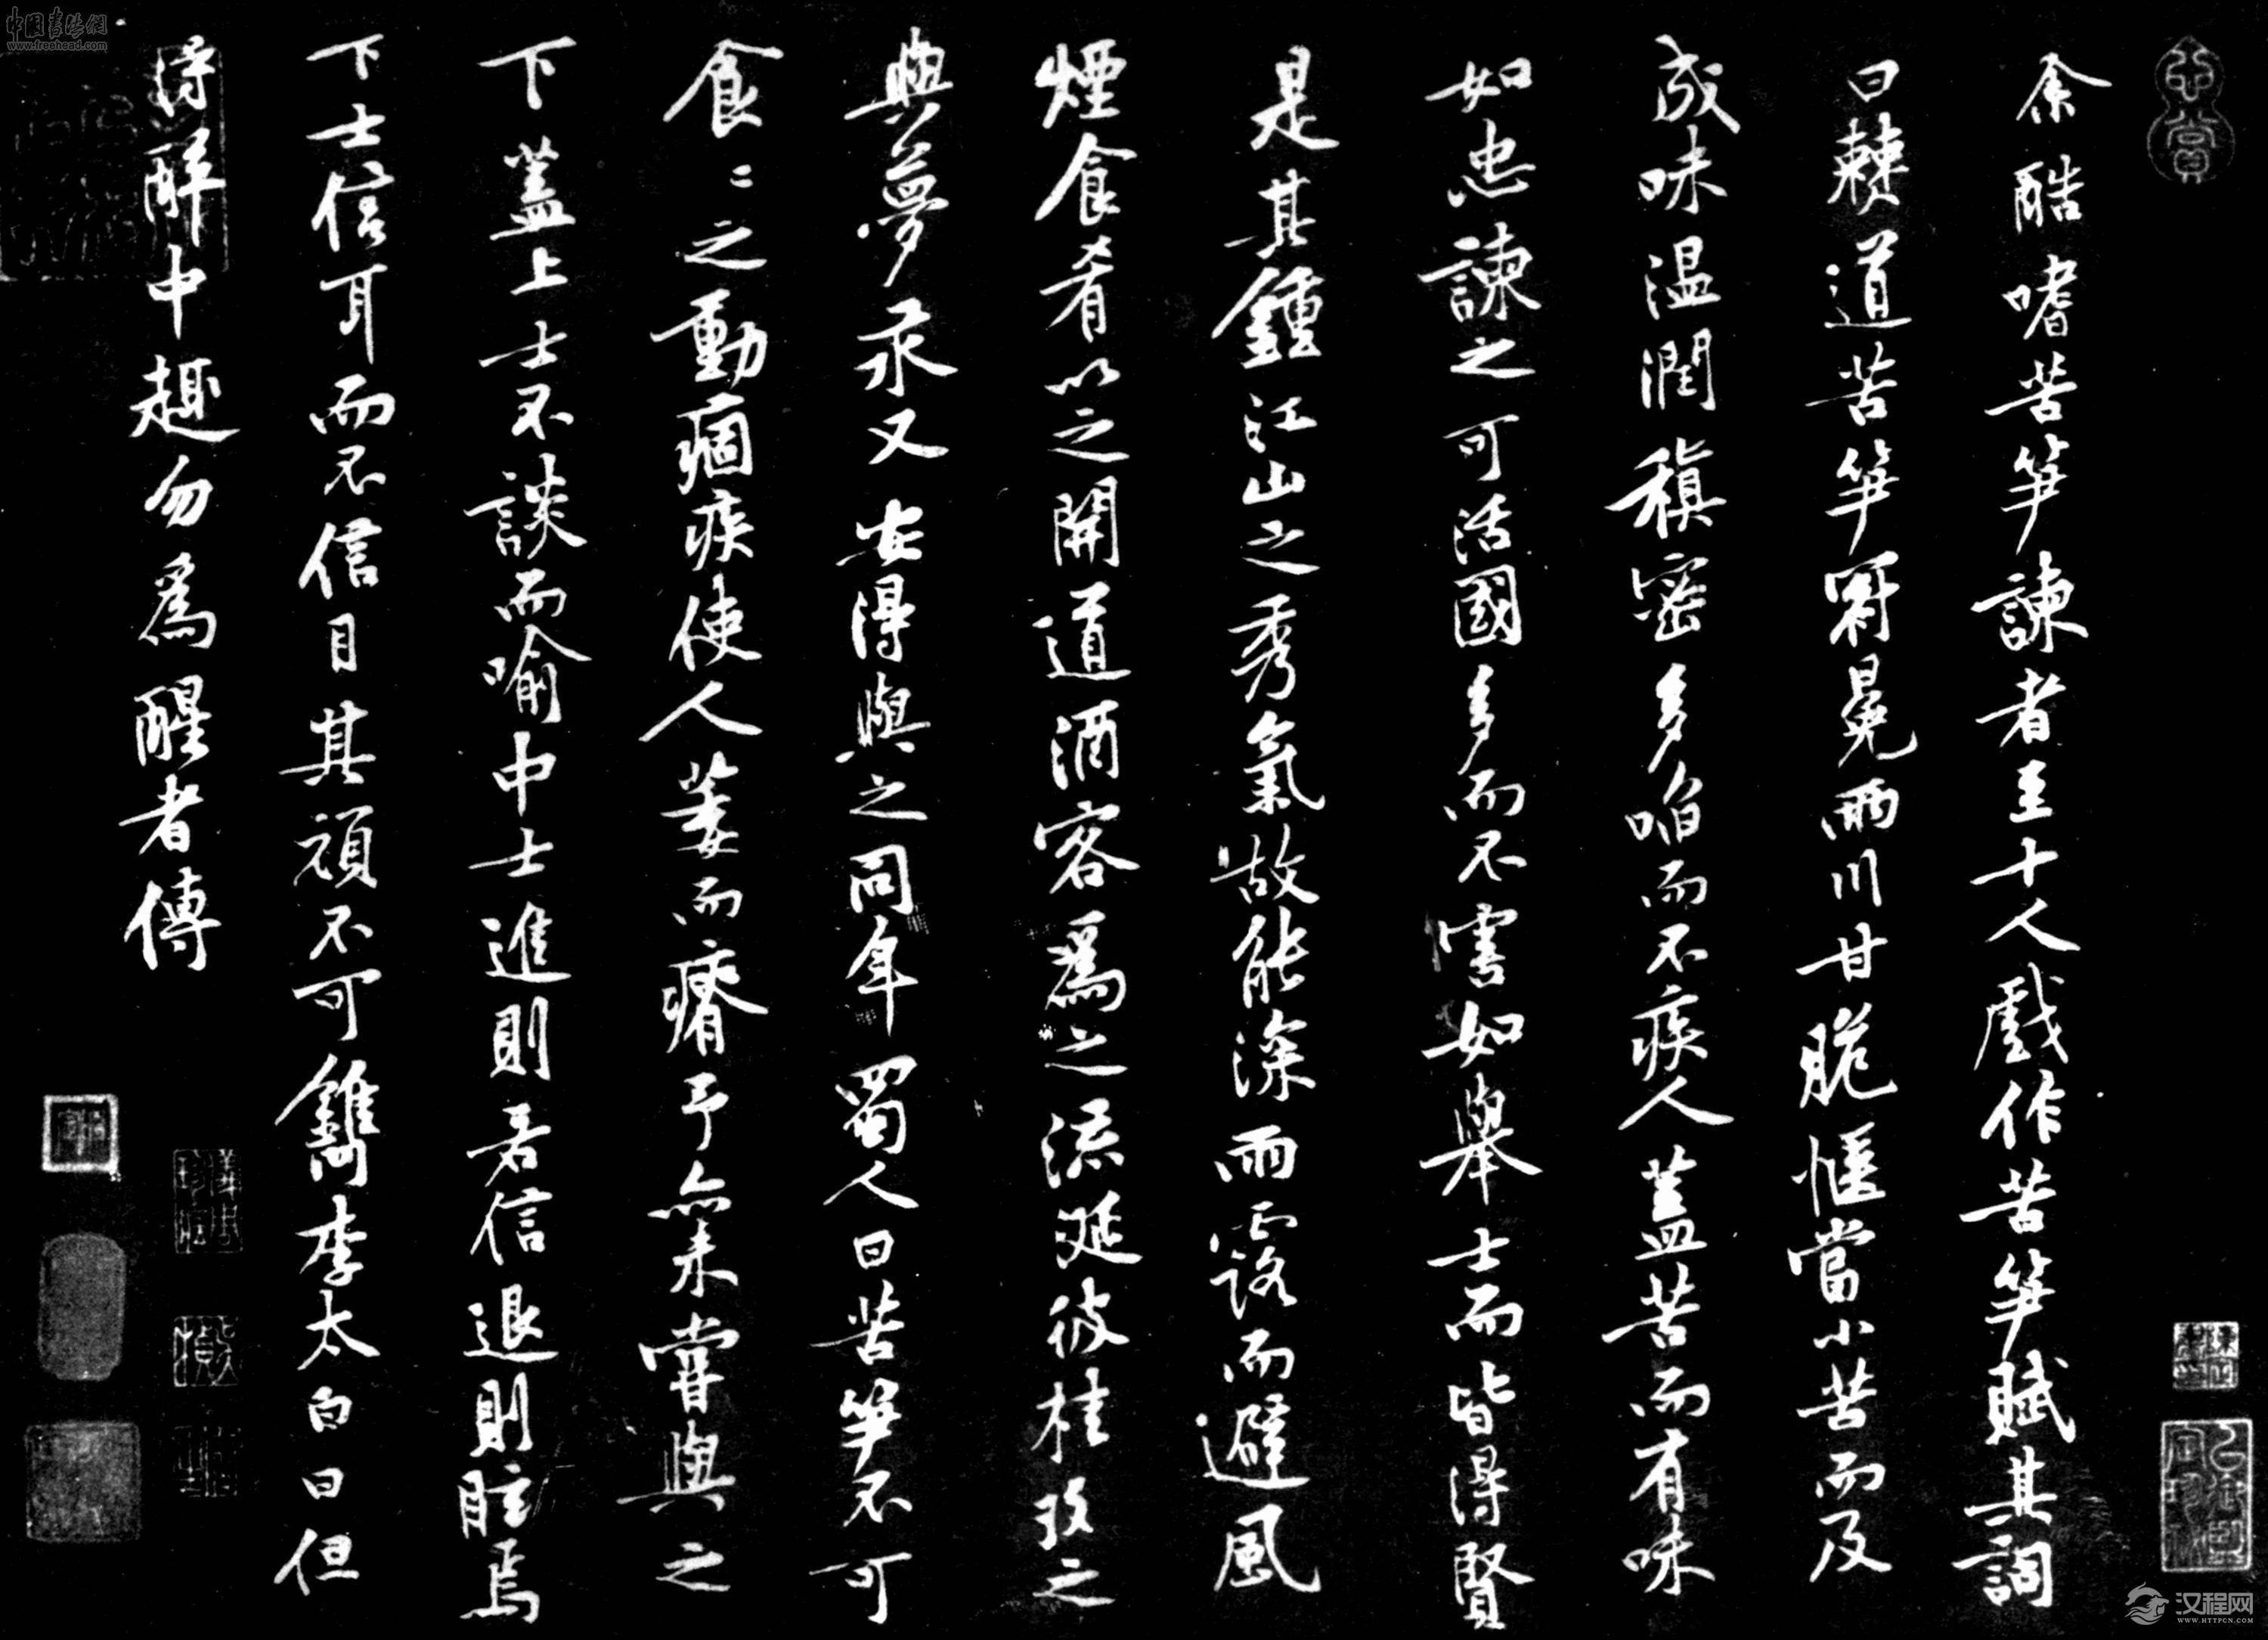 余酷嗜苦笋諫者至十人戲作苦笋賦其詞
曰僰道苦笋冠冕兩川甘脆愜當小苦而及
成味温潤稹密多啗而不疾人蓋苦而有味
如忠諫之可活國多而不害如舉士而皆得賢
是其鍾江山之秀氣故能深雨露而避風
煙食肴以之開道酒客爲之流涎彼桂玫之
與夢汞又安得與之同年蜀人曰苦笋不可
食〻之動痼疾使人萎而瘠予亦未嘗與之
下蓋上士不談而喻中士進則若信退則眩焉
下士信耳而不信目其頑不可鐫李太白曰但
得醉中趣勿爲醒者傳
中国书法网
www.freehead.com
汉程网
WWW.HTTPCN.COM